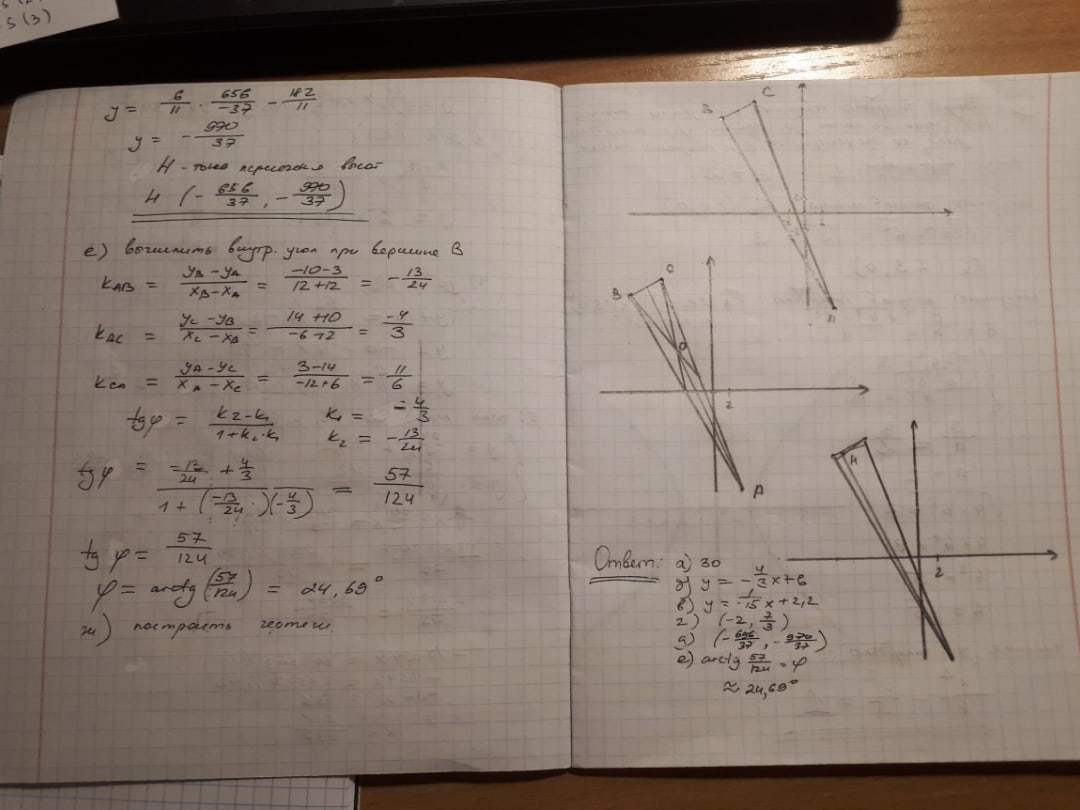 S (3)
y = 6/11 · 656/-37 - 182/11
y = - 990/37
H - точка пересечения высот
H (- 656/37, - 990/37)
е) вычислить внутр. угол при вершине В
k_AB = (y_B - y_A)/(x_B - x_A) = (-10-3)/(12+12) = - 13/24
k_BC = (y_C - y_B)/(x_C - x_B) = (14+10)/(-6-12) = -4/3
k_CA = (y_A - y_C)/(x_A - x_C) = (3-14)/(-12+6) = 11/6
tg φ = (k_2 - k_1)/(1 + k_2 · k_1) k_1 = - 4/3
k_2 = - 13/24
tg φ = (-13/24 + 4/3)/(1 + (-13/24)(-4/3)) = 57/124
tg φ = 57/124
φ = arctg (57/124) = 24,69°
ж) построить чертеж
B C
A
B C
O
2
A
H
2
Ответ: а) 30
б) y = - 4/3 x + 6
в) y = - 1/15 x + 2,2
г) (-2, 7/3)
д) (- 656/37, - 990/37)
е) arctg 57/124 = φ
≈ 24,69°